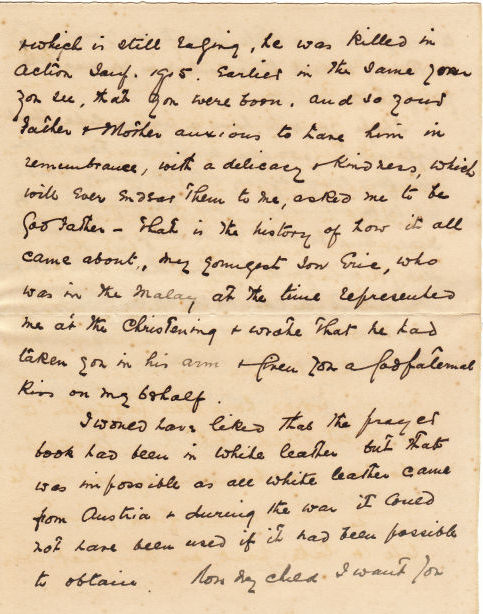 & which is still raging, he was killed in
action Jany. 1915. Earlier in the same year
you see, that you were born. and so your
Father & Mother anxious to have him in
remembrance, with a delicacy & kindness, which
will ever endear them to me, asked me to be
God Father – That is the history of how it all
came about., My youngest son Eric, who
was in the Malay at the time represented
me at the Christening & wrote that he had
taken you in his arm & given you a Godfaternal
kiss on my behalf.
I would have liked that the prayer
book had been in white leather but that
was impossible as all white leather came
from Austria & during the war it could
not have been used if it had been possible
to obtain. Now my child I want you